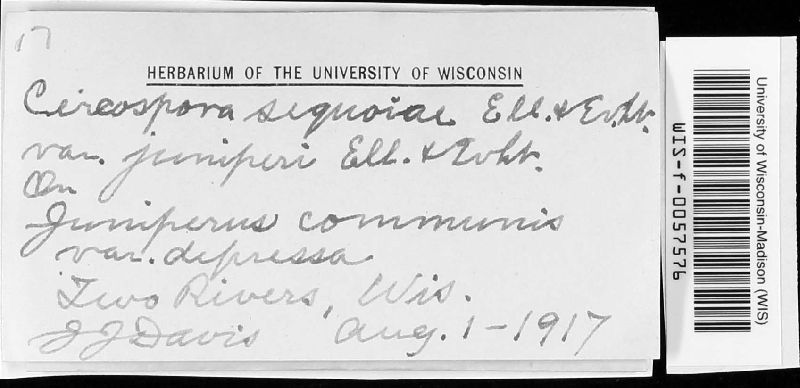 17
HERBARIUM OF THE UNIVERSITY OF WISCONSIN
Cercospora sequoiae Ell. & Evht.
var. juniperi Ell. & Evht.
On
Juniperus communis
var. depressa
Two Rivers, Wis.
J J Davis Aug. 1-1917
University of Wisconsin-Madison (WIS)
WIS-f-0057576